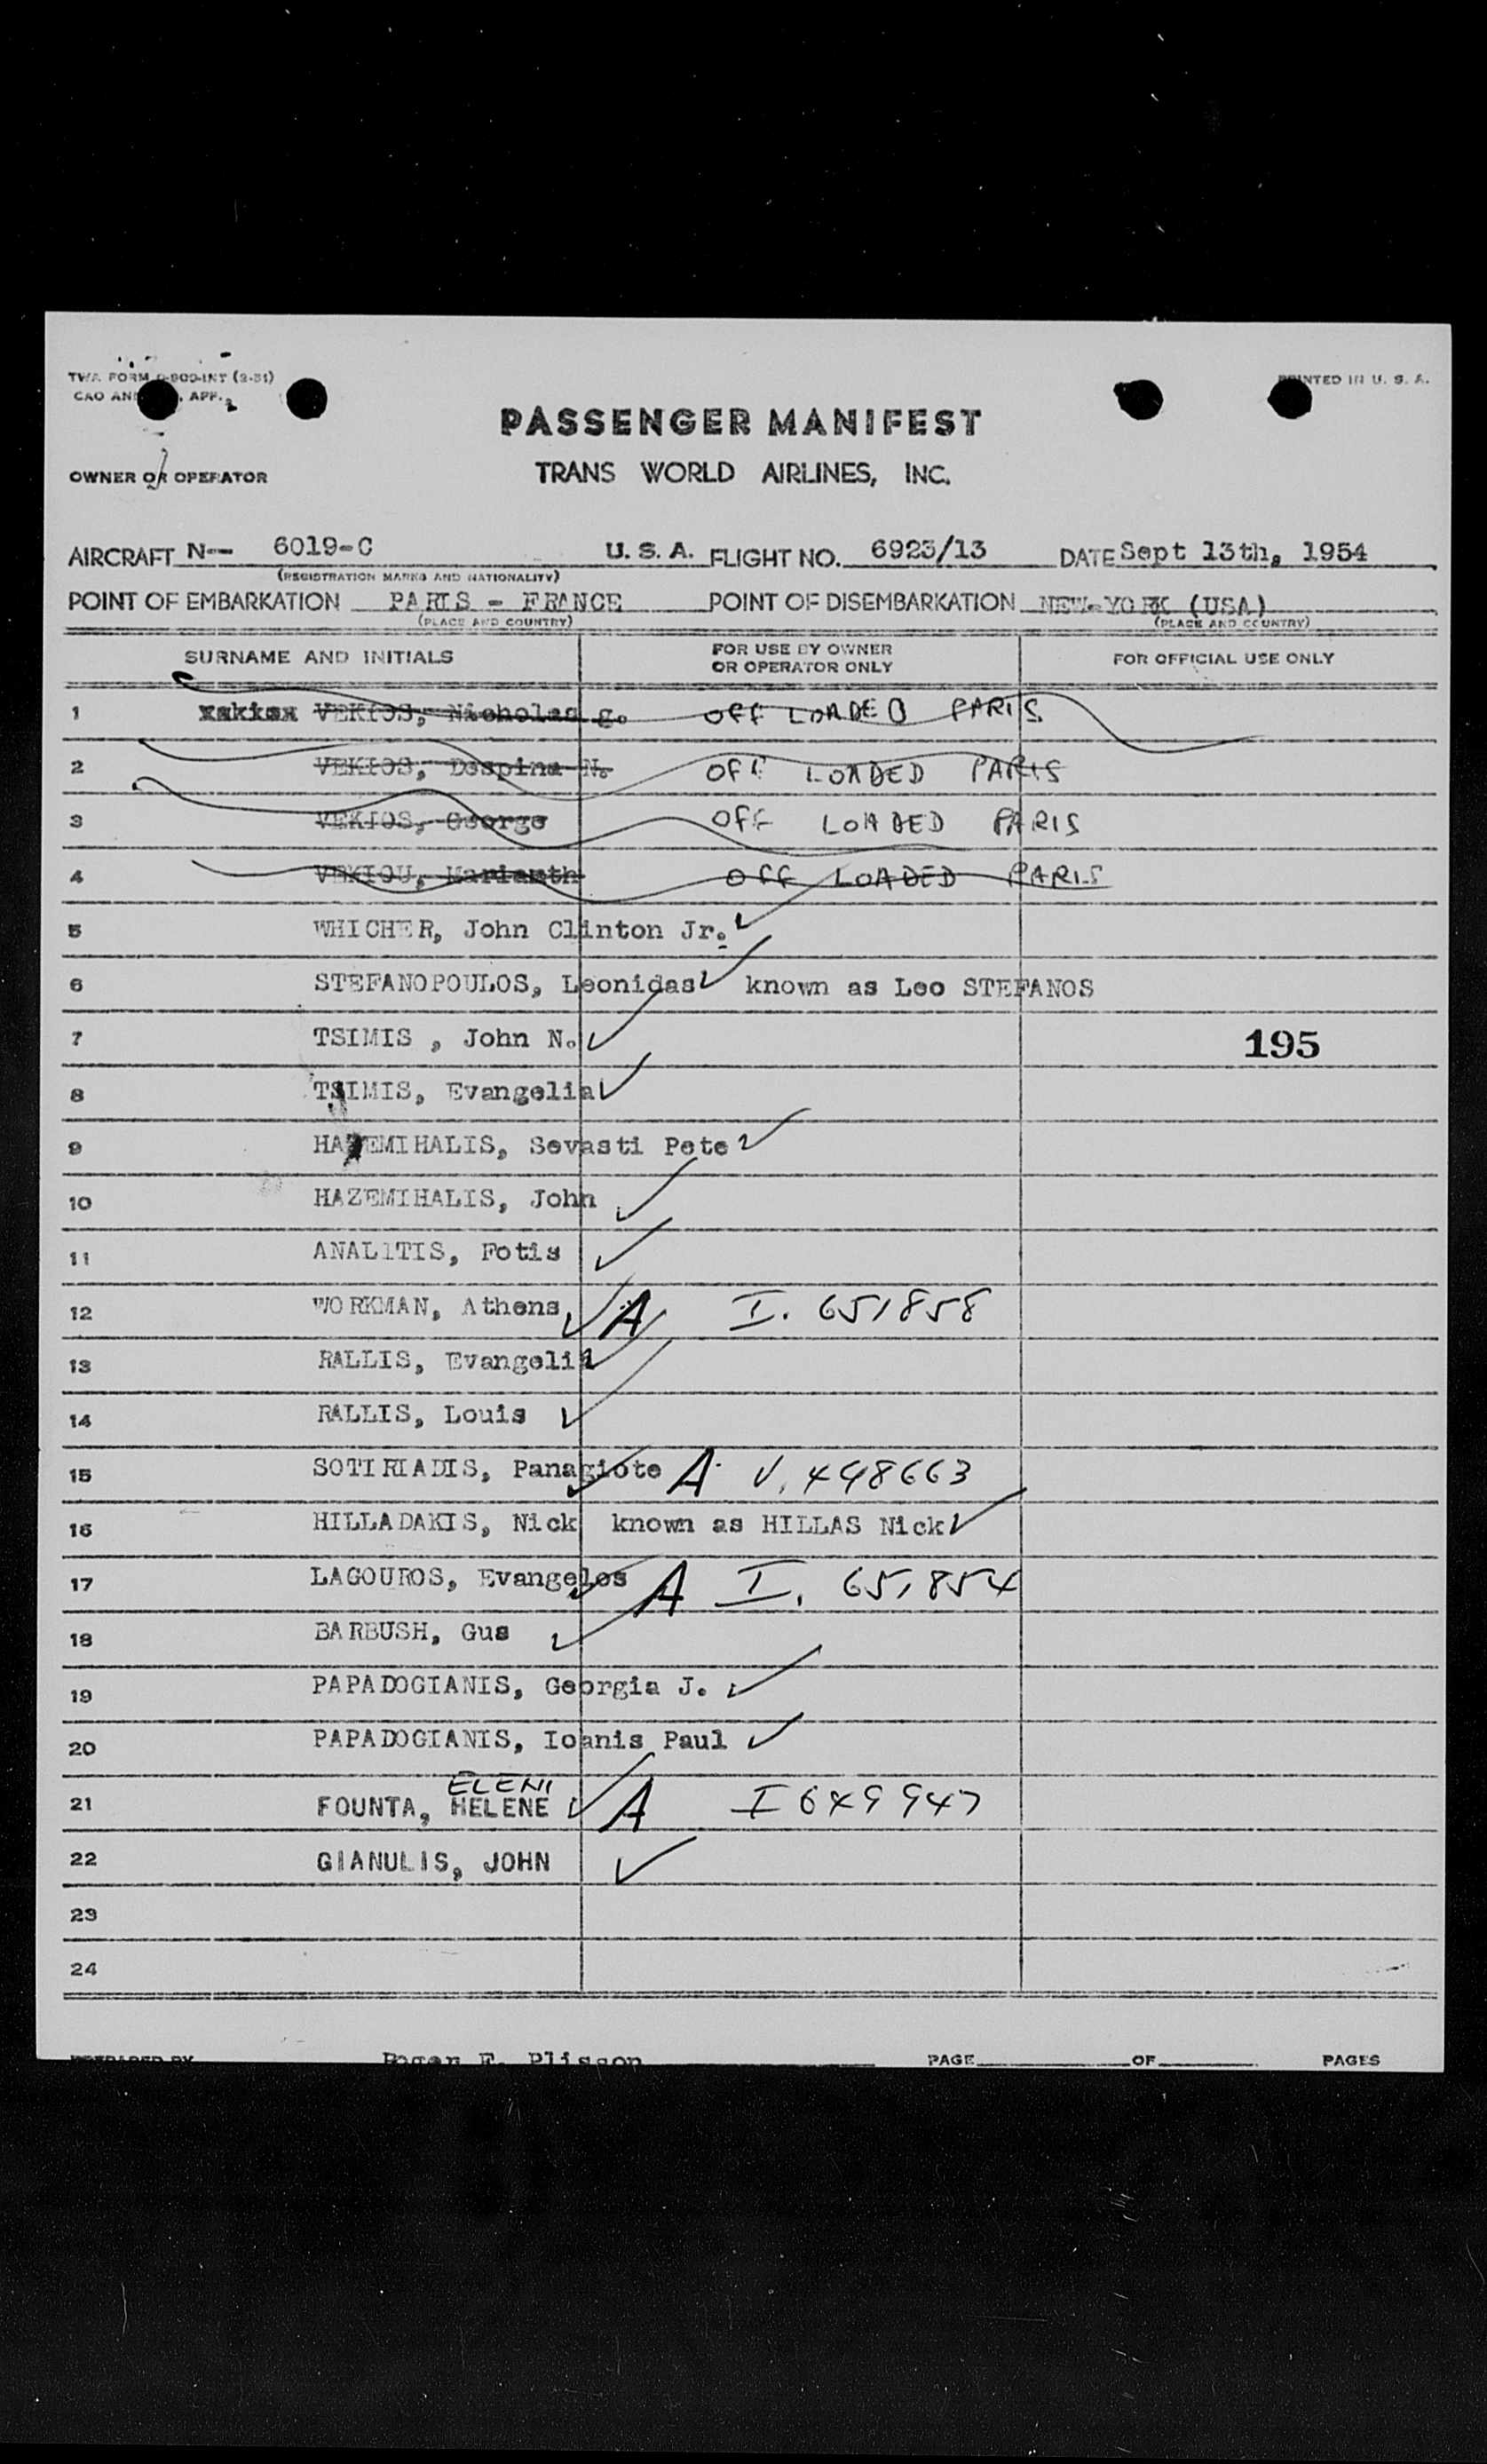 TWA FORM -900-INT (2-51)
PRINTED IN U. S. A.
CAO AN , APP. 2
PASSENGER MANIFEST
OWNER OR OPERATOR TRANS WORLD AIRLINES, INC.
AIRCRAFT N-- 6019-C U. S. A. FLIGHT NO. 6923/13 DATE Sept 13th, 1954
(REGISTRATION MARKS AND NATIONALITY)
POINT OF EMBARKATION PARIS - FRANCE POINT OF DISEMBARKATION NEW-YORK (USA)
(PLACE AND COUNTRY) (PLACE AND COUNTRY)
SURNAME AND INITIALS FOR USE BY OWNER OR OPERATOR ONLY FOR OFFICIAL USE ONLY
1 VEKIOS, Nicholas g. OFF LOADED PARIS
2 VEKIOS, Despina N. OFF LOADED PARIS
3 VEKIOS, George OFF LOADED PARIS
4 VEKIOU, Marianth OFF LOADED PARIS
5 WHICHER, John Clinton Jr.
6 STEFANOPOULOS, Leonidas known as Leo STEFANOS
7 TSIMIS , John N. 195
8 TSIMIS, Evangelia
9 HAZEMIHALIS, Sevasti Pete
10 HAZEMIHALIS, John
11 ANALITIS, Fotis
12 WORKMAN, Athena A I. 651858
13 RALLIS, Evangelia
14 RALLIS, Louis
15 SOTIRIADIS, Panagiote A V. 498663
16 HILLADAKIS, Nick known as HILLAS Nick
17 LAGOUROS, Evangelos A I. 651854
18 BARBUSH, Gus
19 PAPADOGIANIS, Georgia J.
20 PAPADOGIANIS, Ioanis Paul
ELENI
21 FOUNTA, HELENE A I 649947
22 GIANULIS, JOHN
23
24
PREPARED BY Roger E. Plisson PAGE OF PAGES